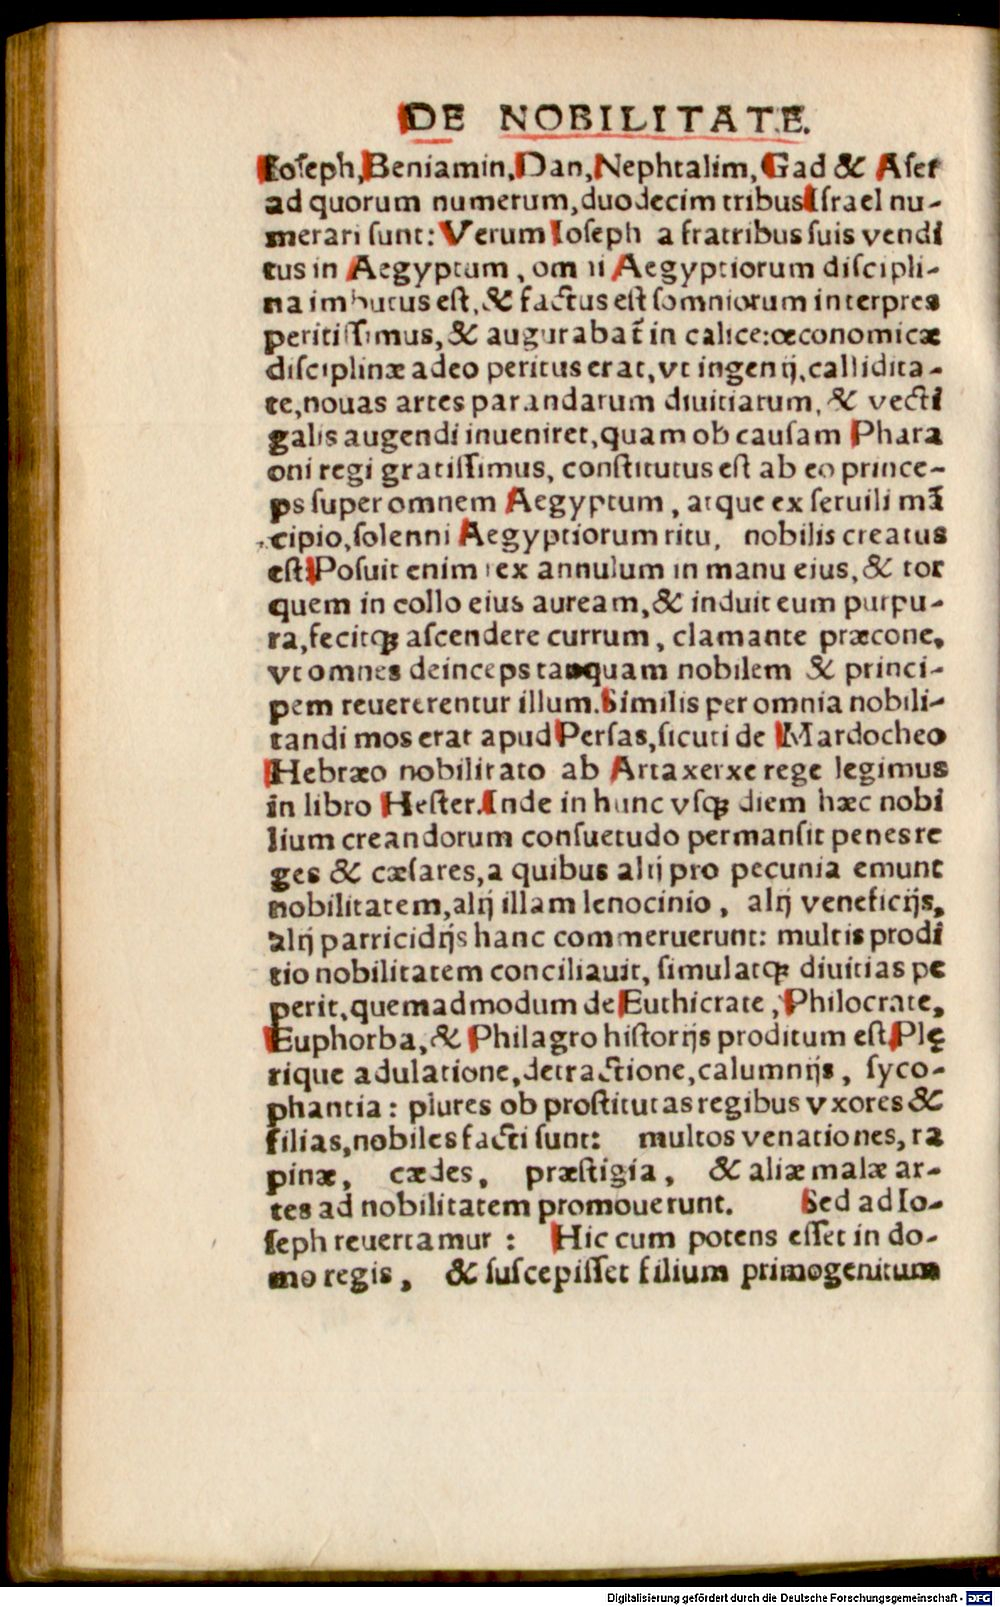 DE NOBILITATE.
Ioseph, Beniamin, Dan, Nephtalim, Gad & Aser
ad quorum numerum, duodecim tribus Israel nu-
merari sunt: Verum Ioseph a fratribus suis vendi
tus in Aegyptum, om ii Aegyptiorum discipli-
na imbutus est, & factus est somniorum interpres
peritissimus, & augurabat̃ in calice: œconomicæ
disciplinæ adeo peritus erat, vt ingenij, callidita-
te, nouas artes parandarum diuitiarum, & vecti
galis augendi inueniret, quam ob causam Phara
oni regi gratissimus, constitutus est ab eo prince-
ps super omnem Aegyptum, atque ex seruili mā
cipio, solenni Aegyptiorum ritu, nobilis creatus
est: Posuit enim rex annulum in manu eius, & tor
quem in collo eius auream, & induit eum purpu-
ra, fecitqꝫ ascendere currum, clamante præcone,
vt omnes deinceps tanquam nobilem & princi-
pem reuererentur illum. Similis per omnia nobili-
tandi mos erat apud Persas, sicuti de Mardocheo
Hebræo nobilitato ab Artaxerxe rege legimus
in libro Hester. Inde in hunc vsqꝫ diem hæc nobi
lium creandorum consuetudo permansit penes re
ges & cæsares, a quibus alij pro pecunia emunt
nobilitatem, alij illam lenocinio, alij veneficijs,
alij parricidijs hanc commeruerunt: multis prodi
tio nobilitatem conciliauit, simulatqꝫ diuitias pe
perit, quemadmodum de Euthicrate, Philocrate,
Euphorba, & Philagro historijs proditum est. Plę
rique adulatione, detractione, calumnijs, syco-
phantia: plures ob prostitutas regibus vxores &
filias, nobiles facti sunt: multos venationes, ra
pinæ, cædes, præstigia, & aliæ malæ ar-
tes ad nobilitatem promouerunt. Sed ad Io-
seph reuertamur: Hic cum potens esset in do-
mo regis, & suscepisset filium primogenitum
Digitalisierung gefördert durch die Deutsche Forschungsgemeinschaft - DFG